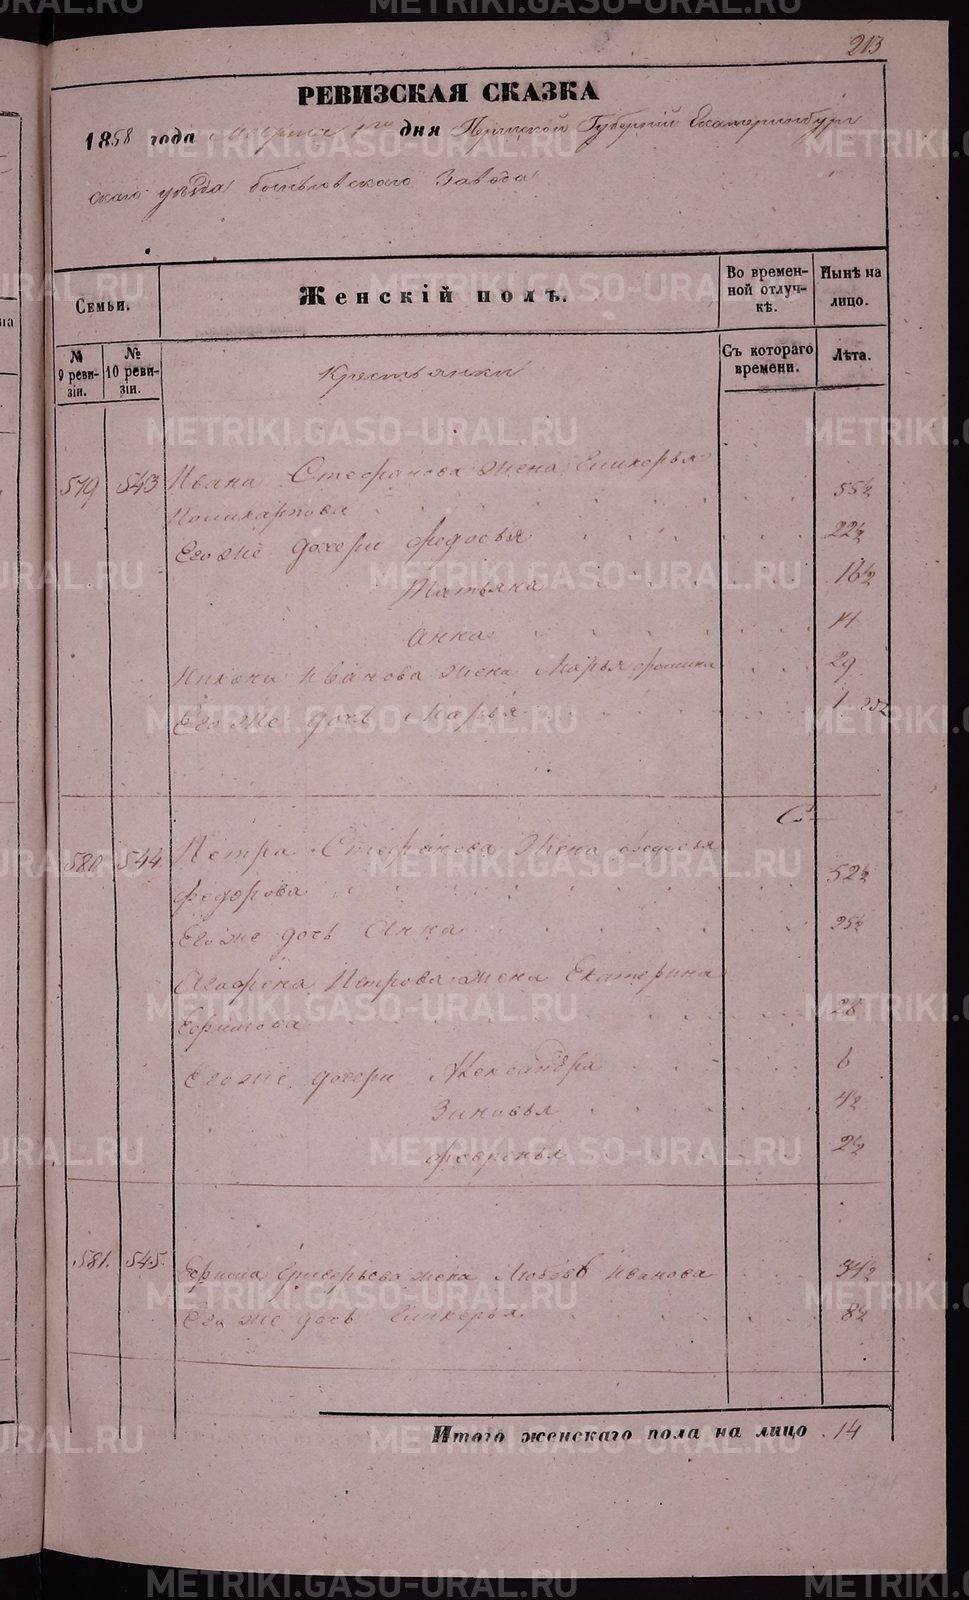 213
РЕВИЗСКАЯ СКАЗКА
1858 года дня Пермской Губернии Екатеринбург
скаго уѣзда Завода
Семьи.
Женскій полъ.
Во времен-
ной отлуч-
кѣ.
Нынѣ на
лицо.
№
9 реви-
зіи.
№
10 реви-
зіи.
Крестьянки
Съ котораго
времени.
Лѣта.
579 543 Ивана Стефанова жена Гликерья
Поликарпова 55½
Его же дочери Федосья 22½
Татьяна 16½
Анна 14
Никона Иванова жена Марья Фомина 29
Его же дочь Марья 1
580 544 Петра Стефанова жена Федосья
Федорова 52½
Его же дочь Анна 25½
Петрова жена Екатерина
Ефимова 28
Его же дочери Александра 6
Зиновья 4½
Февронья 2½
581. 545. Ефима Григорьева жена Любовь Иванова 34½
Его же дочь Гликерья 8½
Итого женскаго пола на лицо 14
METRIKI.GASO-URAL.RU